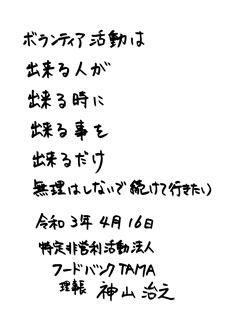 ボランティア活動は
出来る人が
出来る時に
出来る事を
出来るだけ
無理はしないで続けて行きたい
令和3年4月16日
特定非営利活動法人
フードバンクTAMA
理事長 神山治之